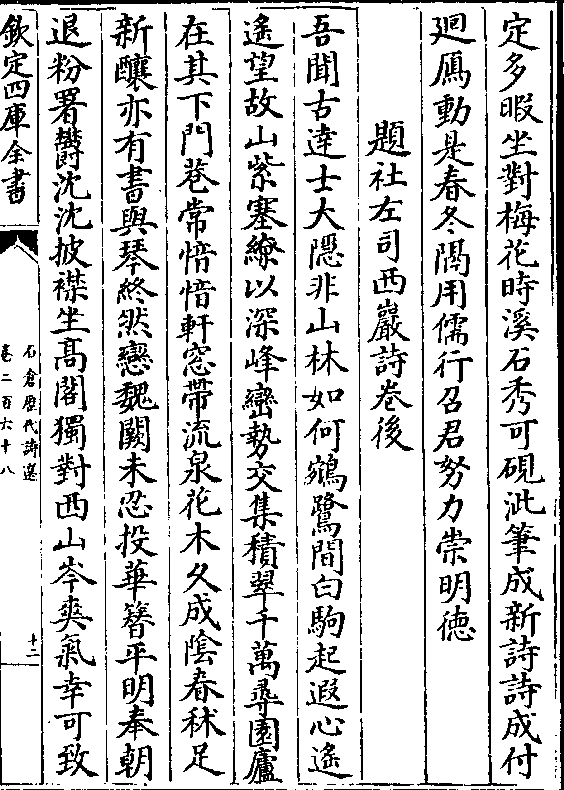 定多暇坐對梅花時溪石秀可硯泚筆成新詩詩成付
廻鴈動是春冬隔用儒行召君努力崇明徳
題社左司西巖詩卷後
吾聞古達士大隠非山林如何鵷鷺間白駒起遐心遙
遙望故山紫塞繚以深峰巒勢交集積翠千萬尋園廬
在其下門巷常愔愔軒窓帶流泉花木久成陰春秫足
新釀亦有書與琴終然戀魏闕未忍投華簪平明奉朝
退粉署欝沈沈披襟坐髙閣獨對西山岑爽氣幸可致
欽定四庫全書
石倉歴代詩選
卷二百六十八
十二